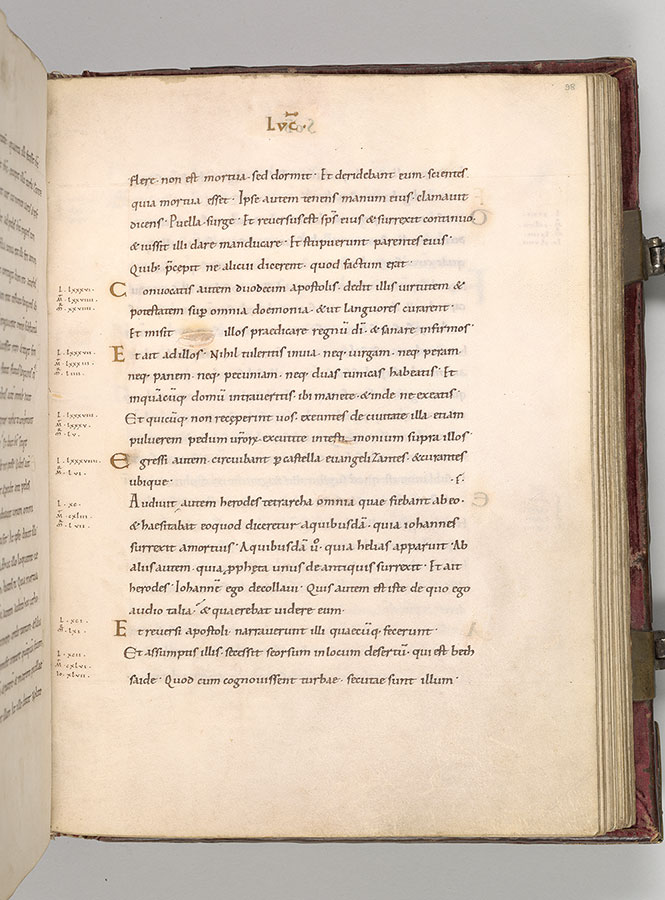 98
Lvc̄.
flere · non est mortua · sed dormit · Et deridebant eum · scientes
quia mortua esset · Ipse autem tenens manum eius · clamauit
dicens · Puella · surge · Et reuersus est sp̄s eius & surrexit continuo ·
& iussit illi dare manducare · Et stupuerunt parentes eius ·
Quib; p̄cepit ne alicui dicerent · quod factum erat
L · lxxxvi ·
M̄ · lxxviiii ·
M̄ · xxviii ·
Conuocatis autem duodecim apostolis · dedit illis uirtutem &
potestatem sup omnia doemonia · & ut languores curarent ·
Et misit illos praedicare regnū dī · & sanare infirmos ·
L · lxxxvii ·
M̄ · lxxxiii ·
Et ait ad illos · Nihil tuleritis in uia · neq; uirgam · neq; peram
neq; panem · neq; pecuniam · neq; duas tunicas habeatis · Et
in quācūq; domū intraueritis · ibi manete · & inde ne exeatis ·
L · lxxxviii ·
M̄ · lxxxv ·
R · lv ·
Et quicūq; non receperint uos · exeuntes de ciuitate illa · etiam
puluerem pedum ur̄orꝝ · excutite in testi monium supra illos ·
L · lxxxviiii ·
M̄ · lvi ·
Egressi autem · circuibant ꝑ castella · euangelizantes · & curantes
ubique ·
L · xc ·
M̄ · cxliii ·
M̄ · lvii ·
Audiuit autem herodes tetrarcha omnia quae fiebant ab eo ·
& haesitabat eo quod diceretur a quibusdā · quia iohannes
surrexit a mortuis · A quibusdā ů · quia helias apparuit · Ab
aliis autem · quia ꝓpheta unus de antiquis surrexit · Et ait
herodes · Iohannē ego decollaui · Quis autem est iste de quo ego
audio talia · & quaerebat uidere eum ·
L · xci ·
M̄ · lxi ·
Et reuersi apostoli · narrauerunt illi quaecūq; fecerunt ·
L · xcii ·
M̄ · cxlvi ·
Io · xlvii ·
Et assumptis illis · secessit seorsum in locum desertū · qui est beth
saide · Quod cum cognouissent turbae · secutae sunt illum ·